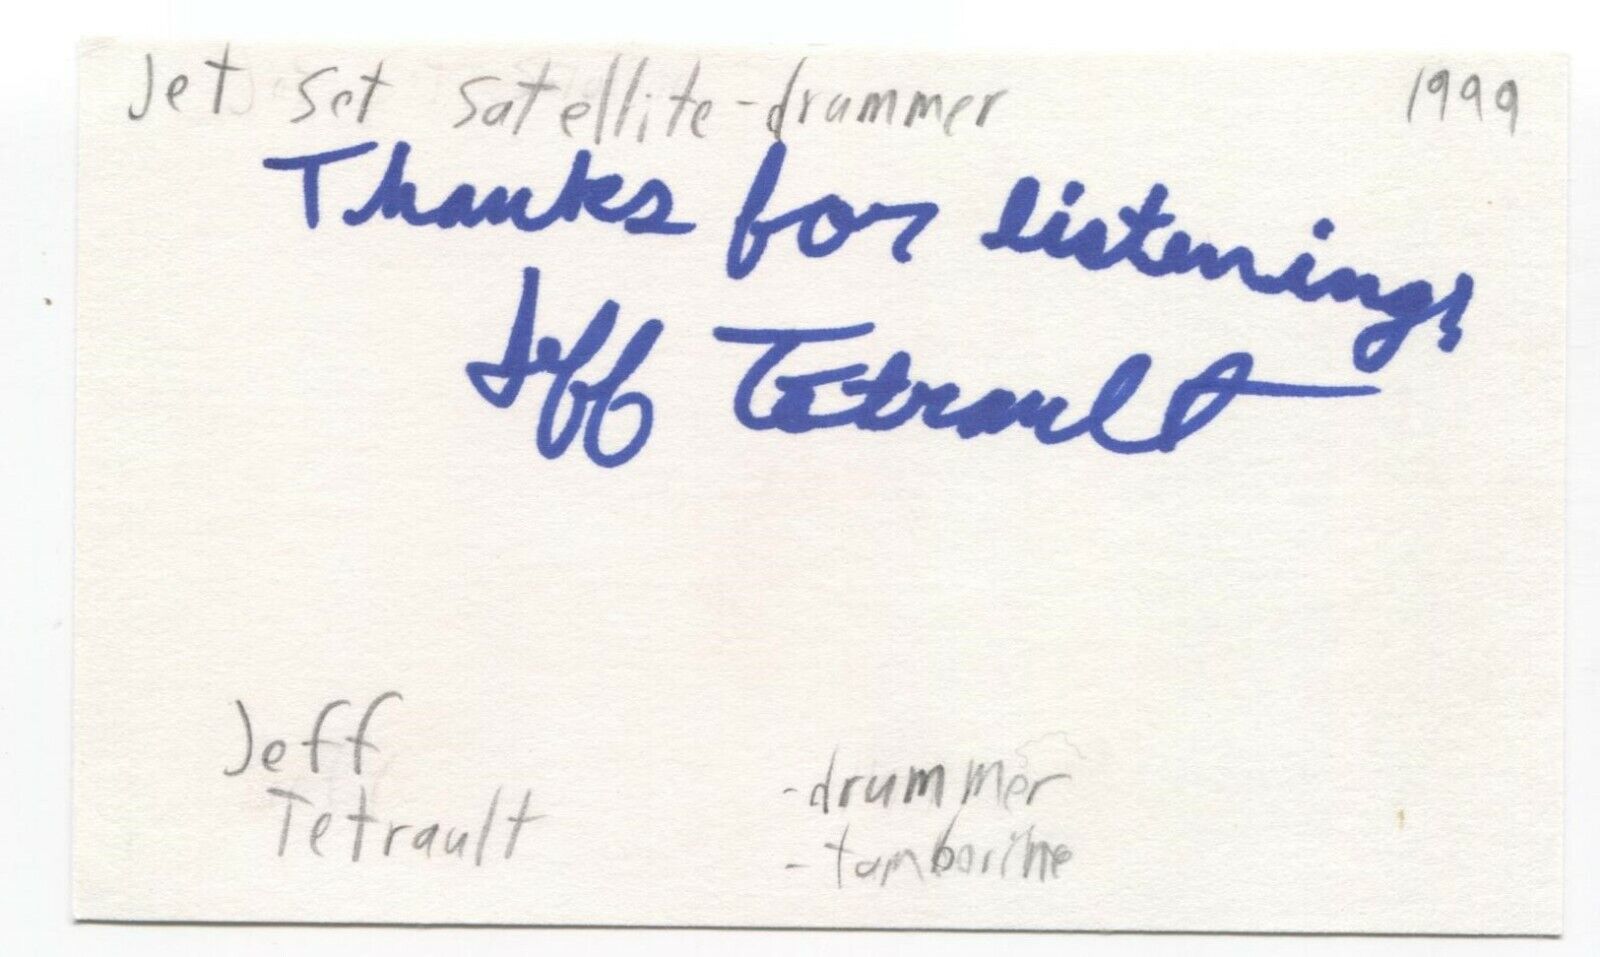 Jet Set Satellite - drummer 1999
Thanks for listening!
Jeff Tetrault
Jeff
Tetrault
- drummer
- tamborine